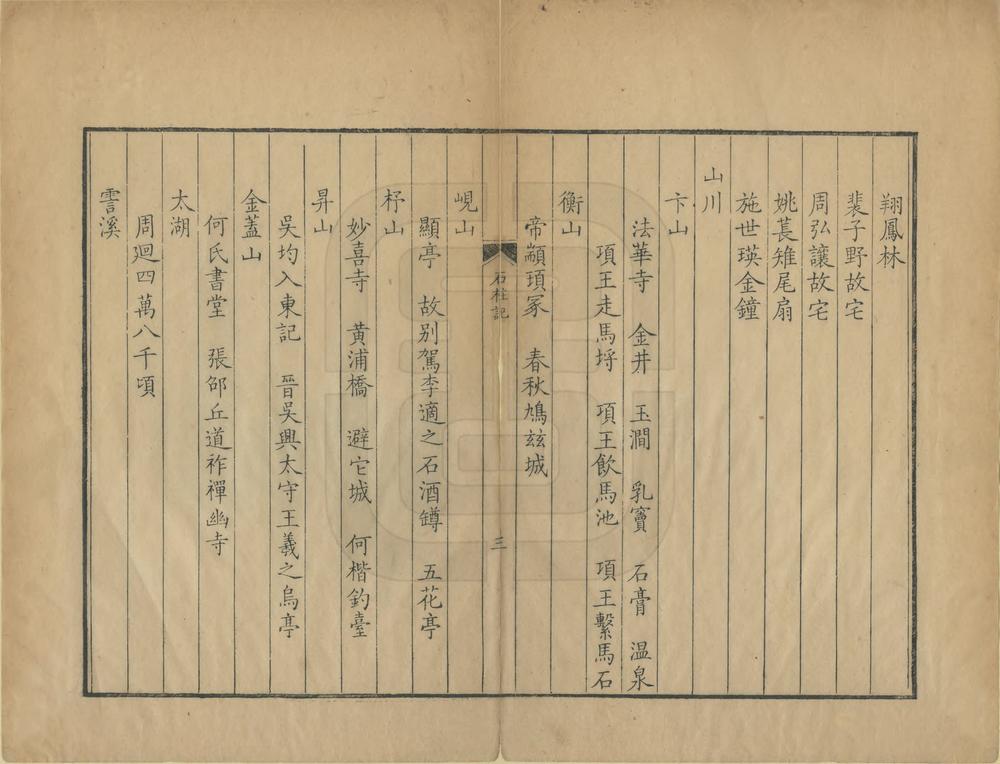 翔鳳林
裴子野故宅
周弘讓故宅
姚萇雉尾扇
施世瑛金鐘
山川
卞山
法華寺　金井　玉澗　乳竇　石膏　溫泉
項王走馬埒　項王飲馬池　項王繫馬石
衡山
帝顓頊冢　春秋鳩兹城
石柱記　三
峴山
顯亭　故别駕李適之石酒罇　五花亭
杼山
妙喜寺　黄浦橋　避它城　何楷釣臺
昇山
吳均入東記　晉吳興太守王羲之烏亭
金蓋山
何氏書堂　張邵丘道祚禪幽寺
太湖
周廻四萬八千頃
霅溪